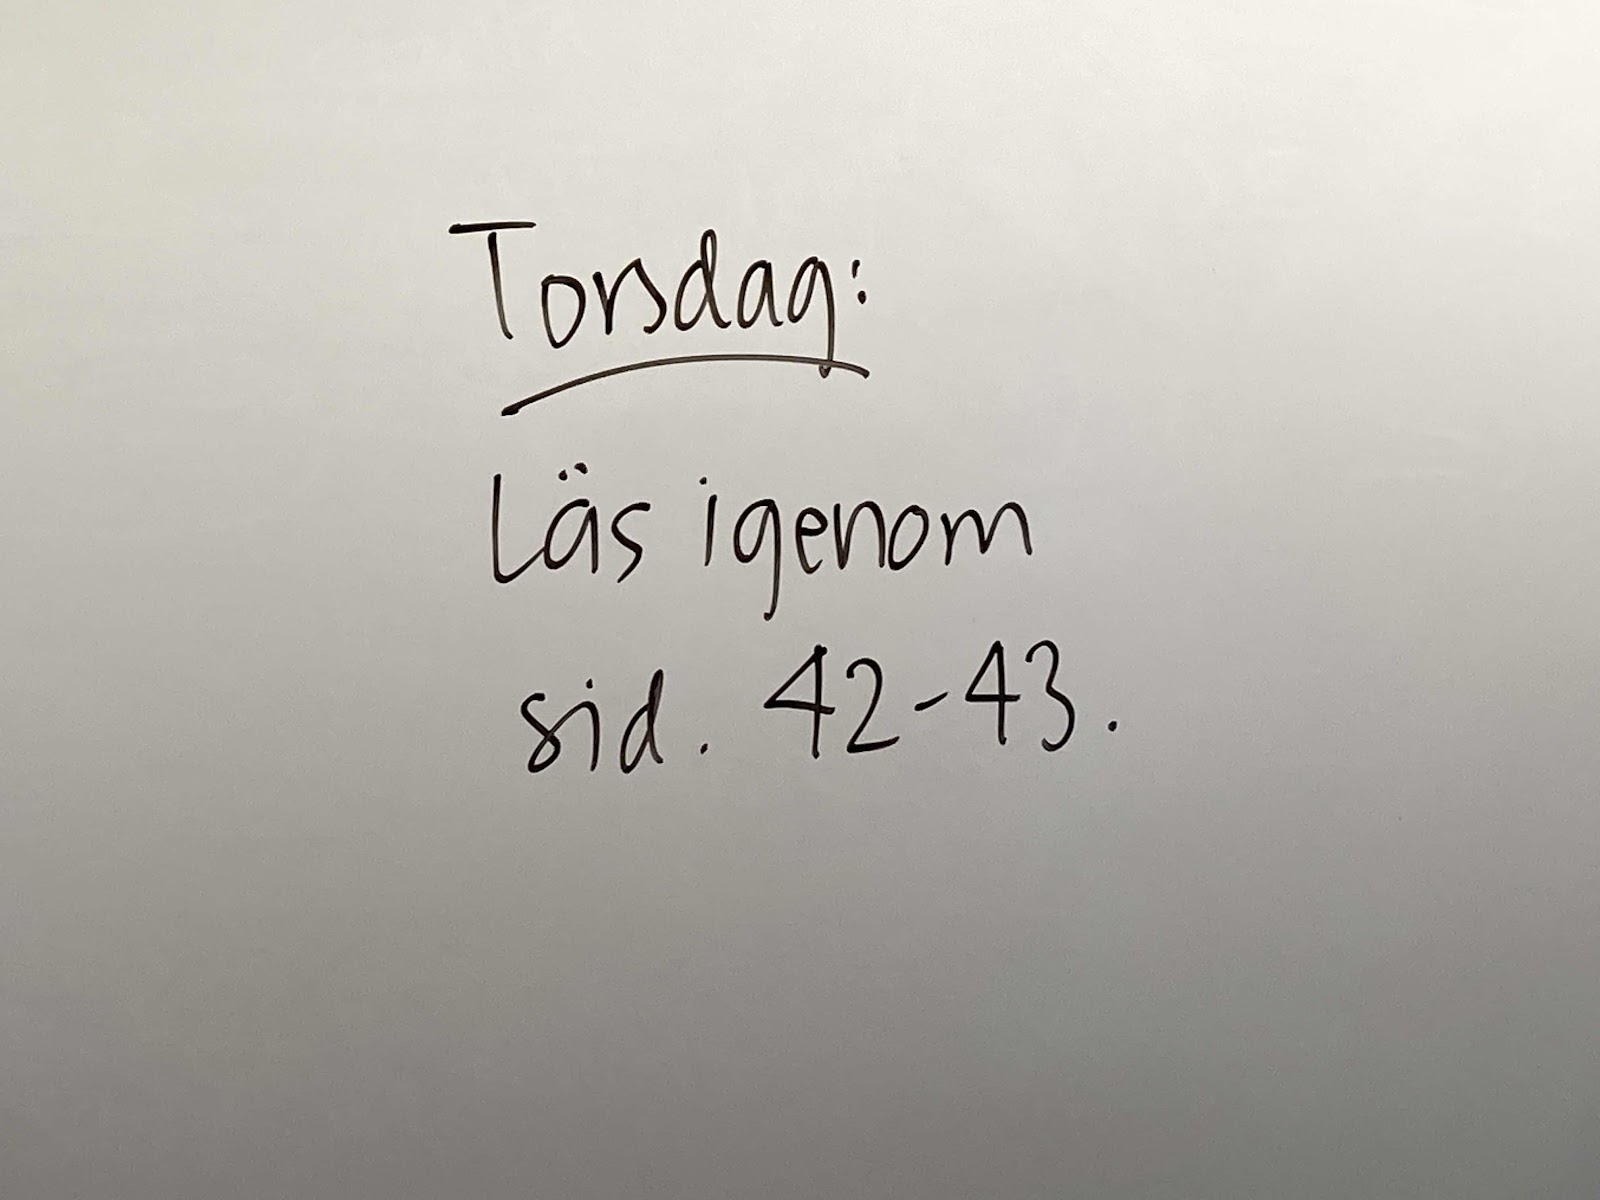 Torsdag:
Läs igenom
sid. 42-43.